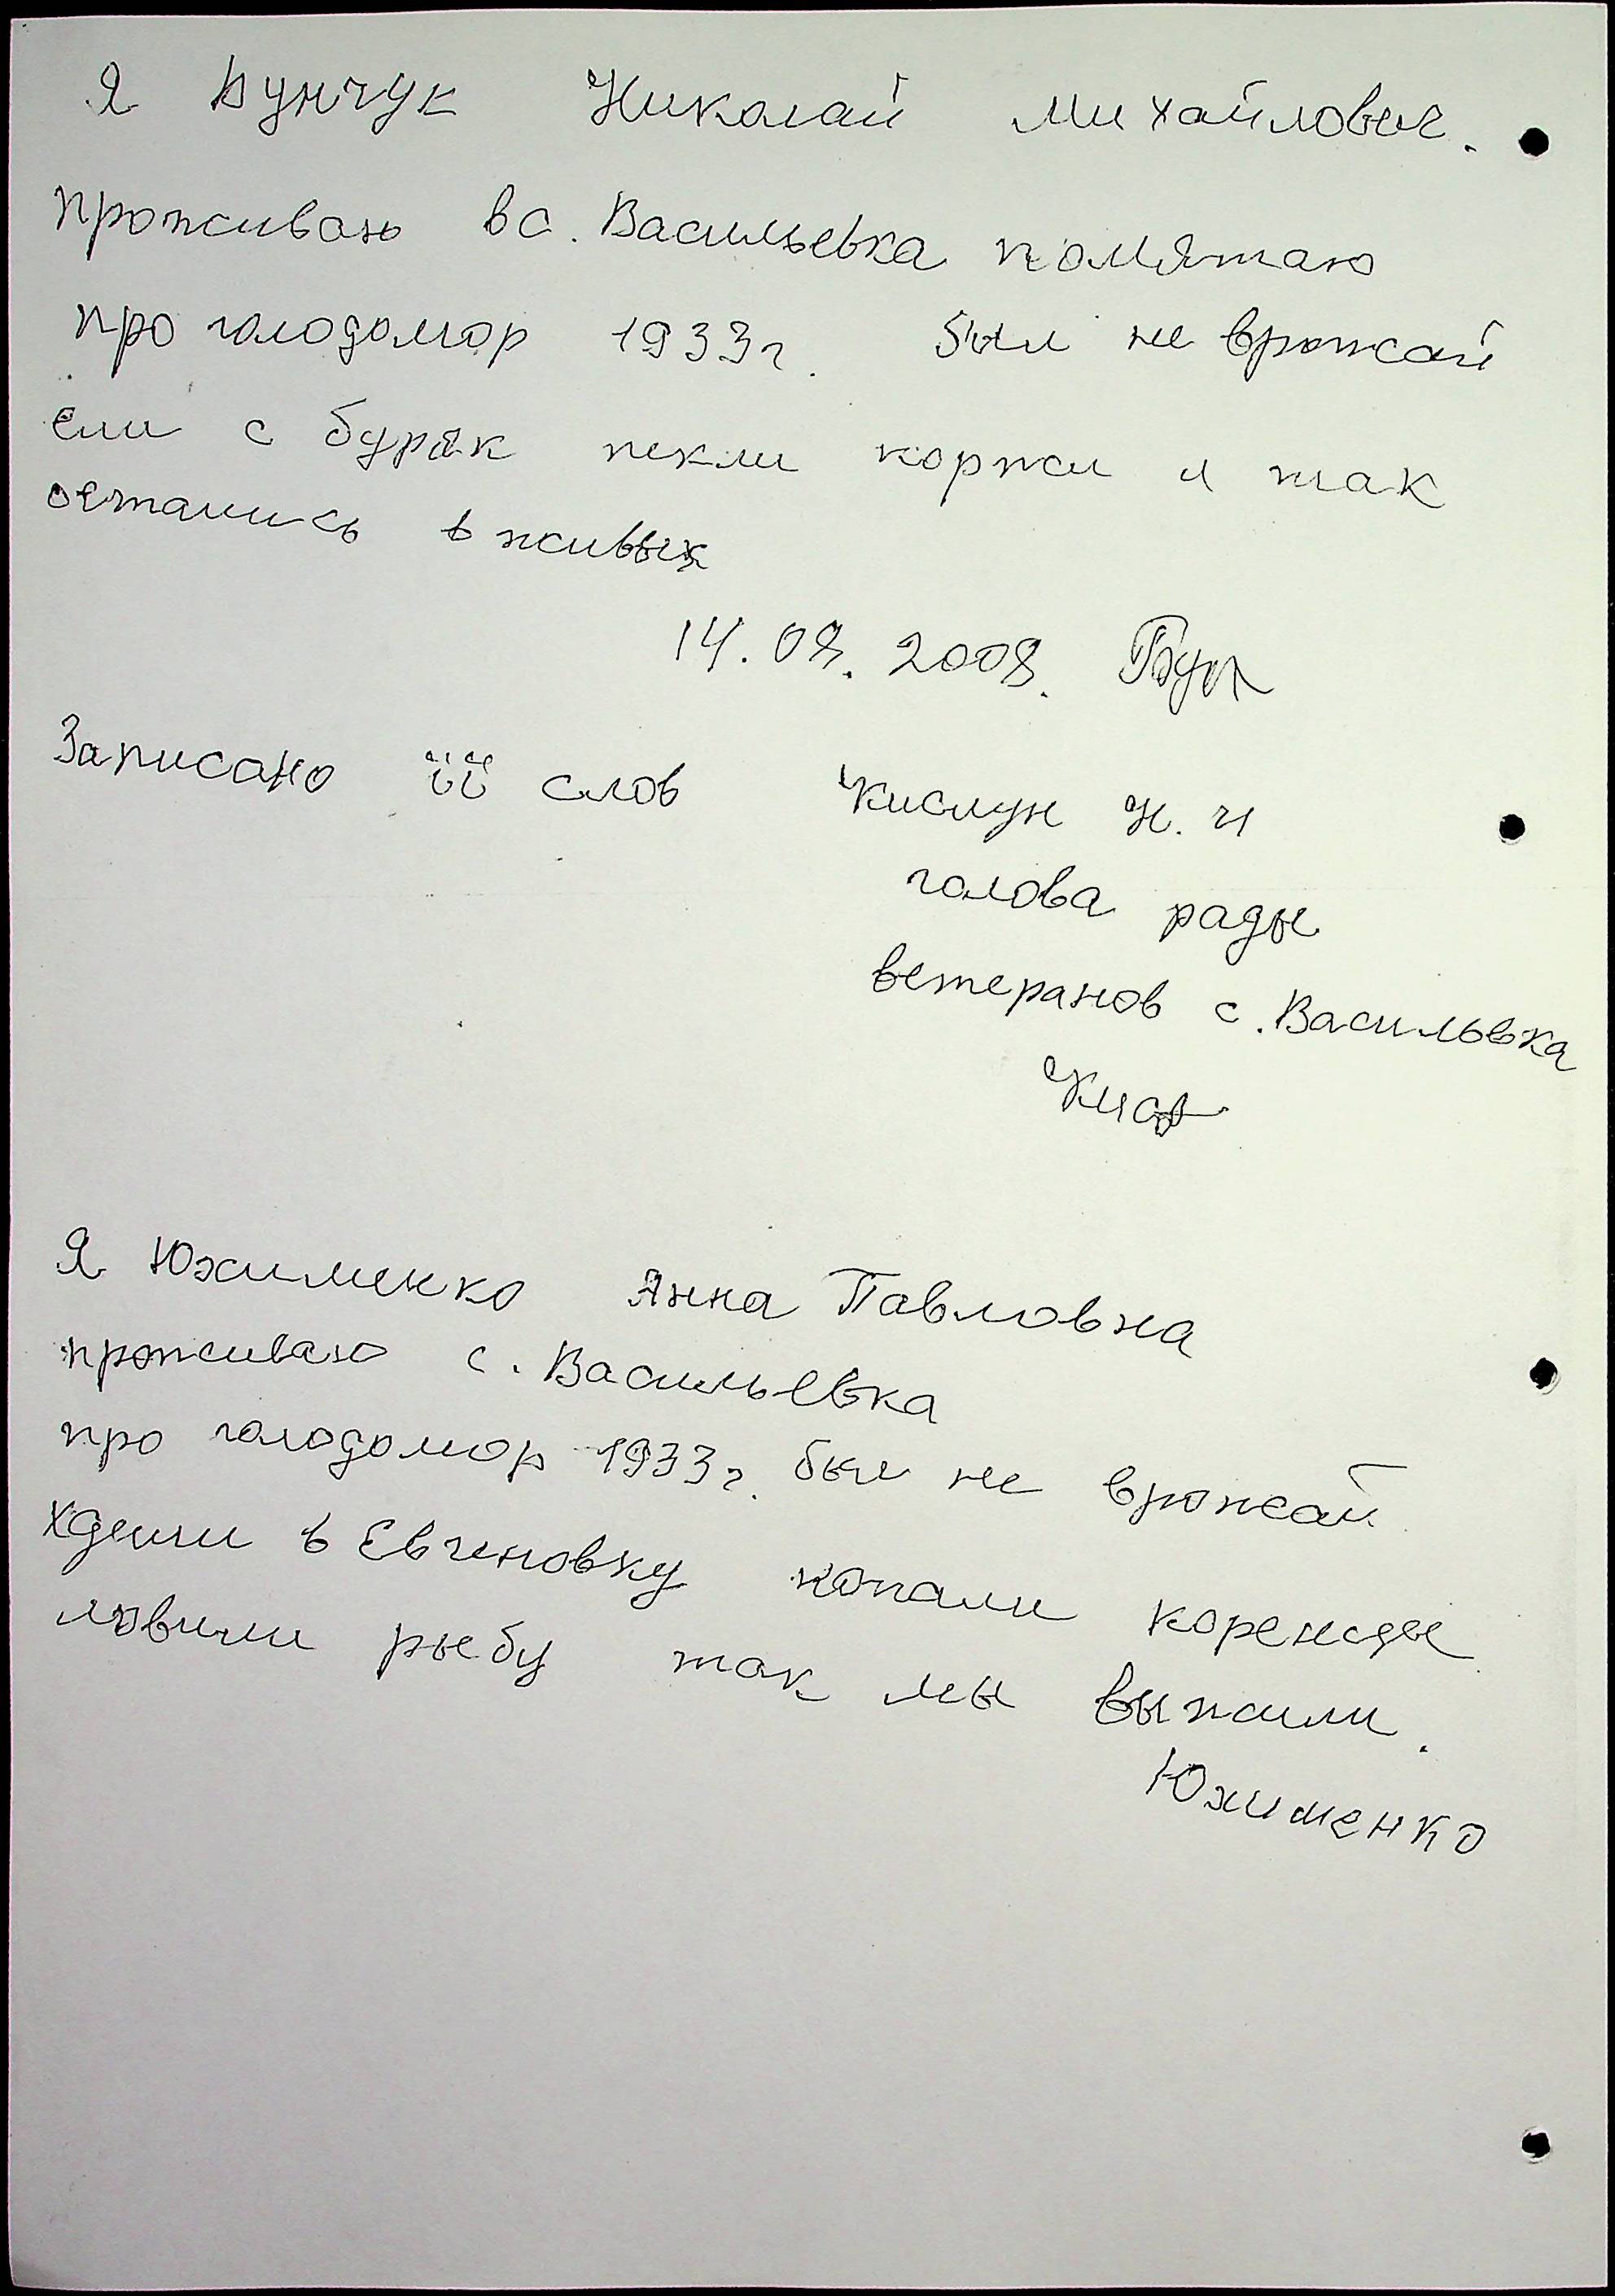 Я Бунчук Николай Михайлович.
проживаю в с. Васильевка помятаю
про голодомор 1933г. был не врожай
ели с буряк пекли коржи и так
остались в живых
14.08.2008. Бун
Записано її слов Кислун Н. И
голова рады
ветеранов с. Васильвка
Кис
Я Юхименко Анна Павловна
проживаю с. Васильевка
про голодомор 1933г. был не врожай
ходили в Евгеновку копали коренцы
ловили рыбу так мы выжили.
Юхименко